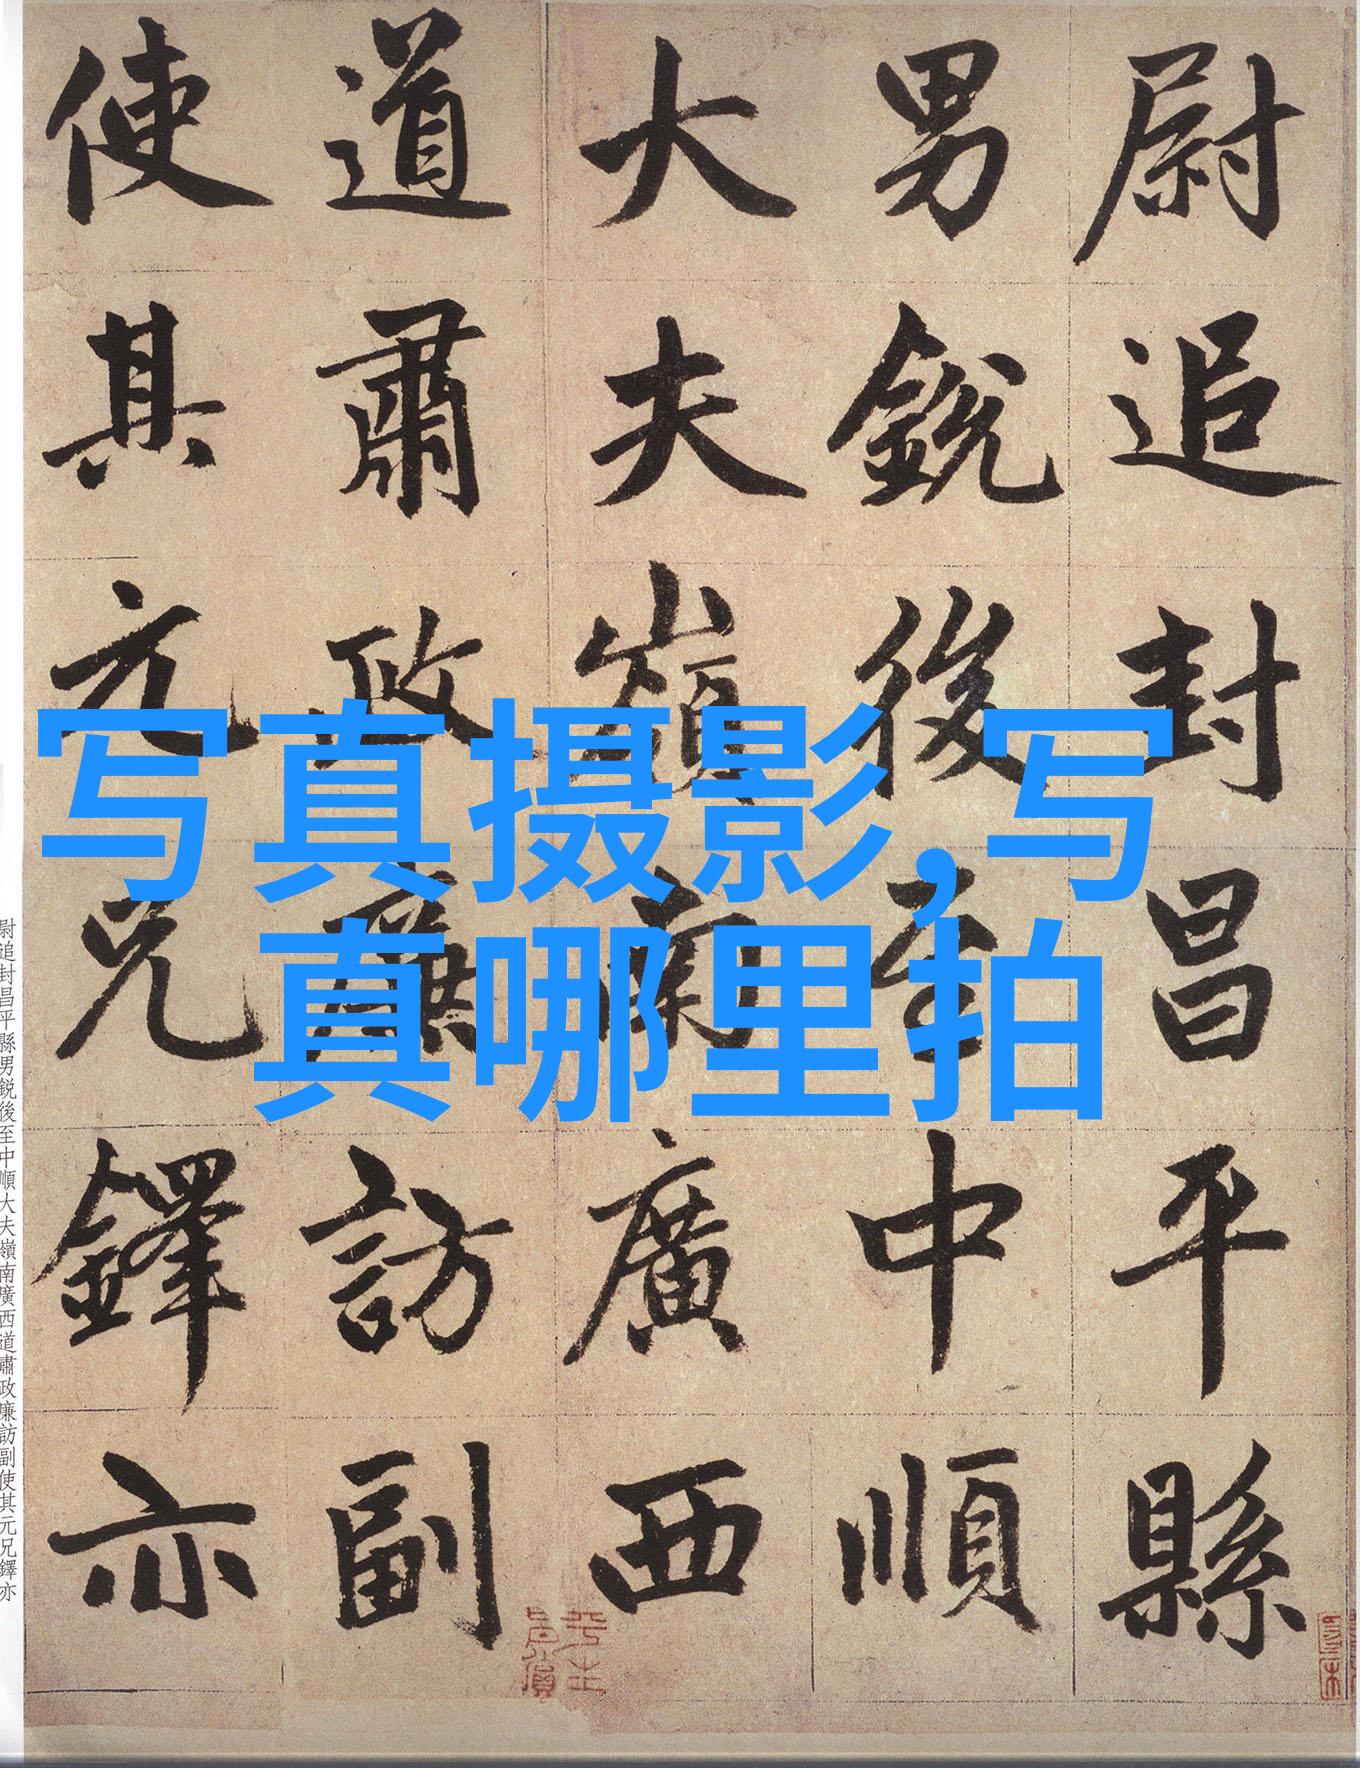 尉追封昌平縣
男銳後至中順
大夫嶺南廣西
道肅政廉訪副
使其元兄鐸亦
写真摄影,写
真哪里拍
尉追封昌平縣男銳後至中順大夫嶺南廣西道肅政廉訪副使其元兄鐸亦